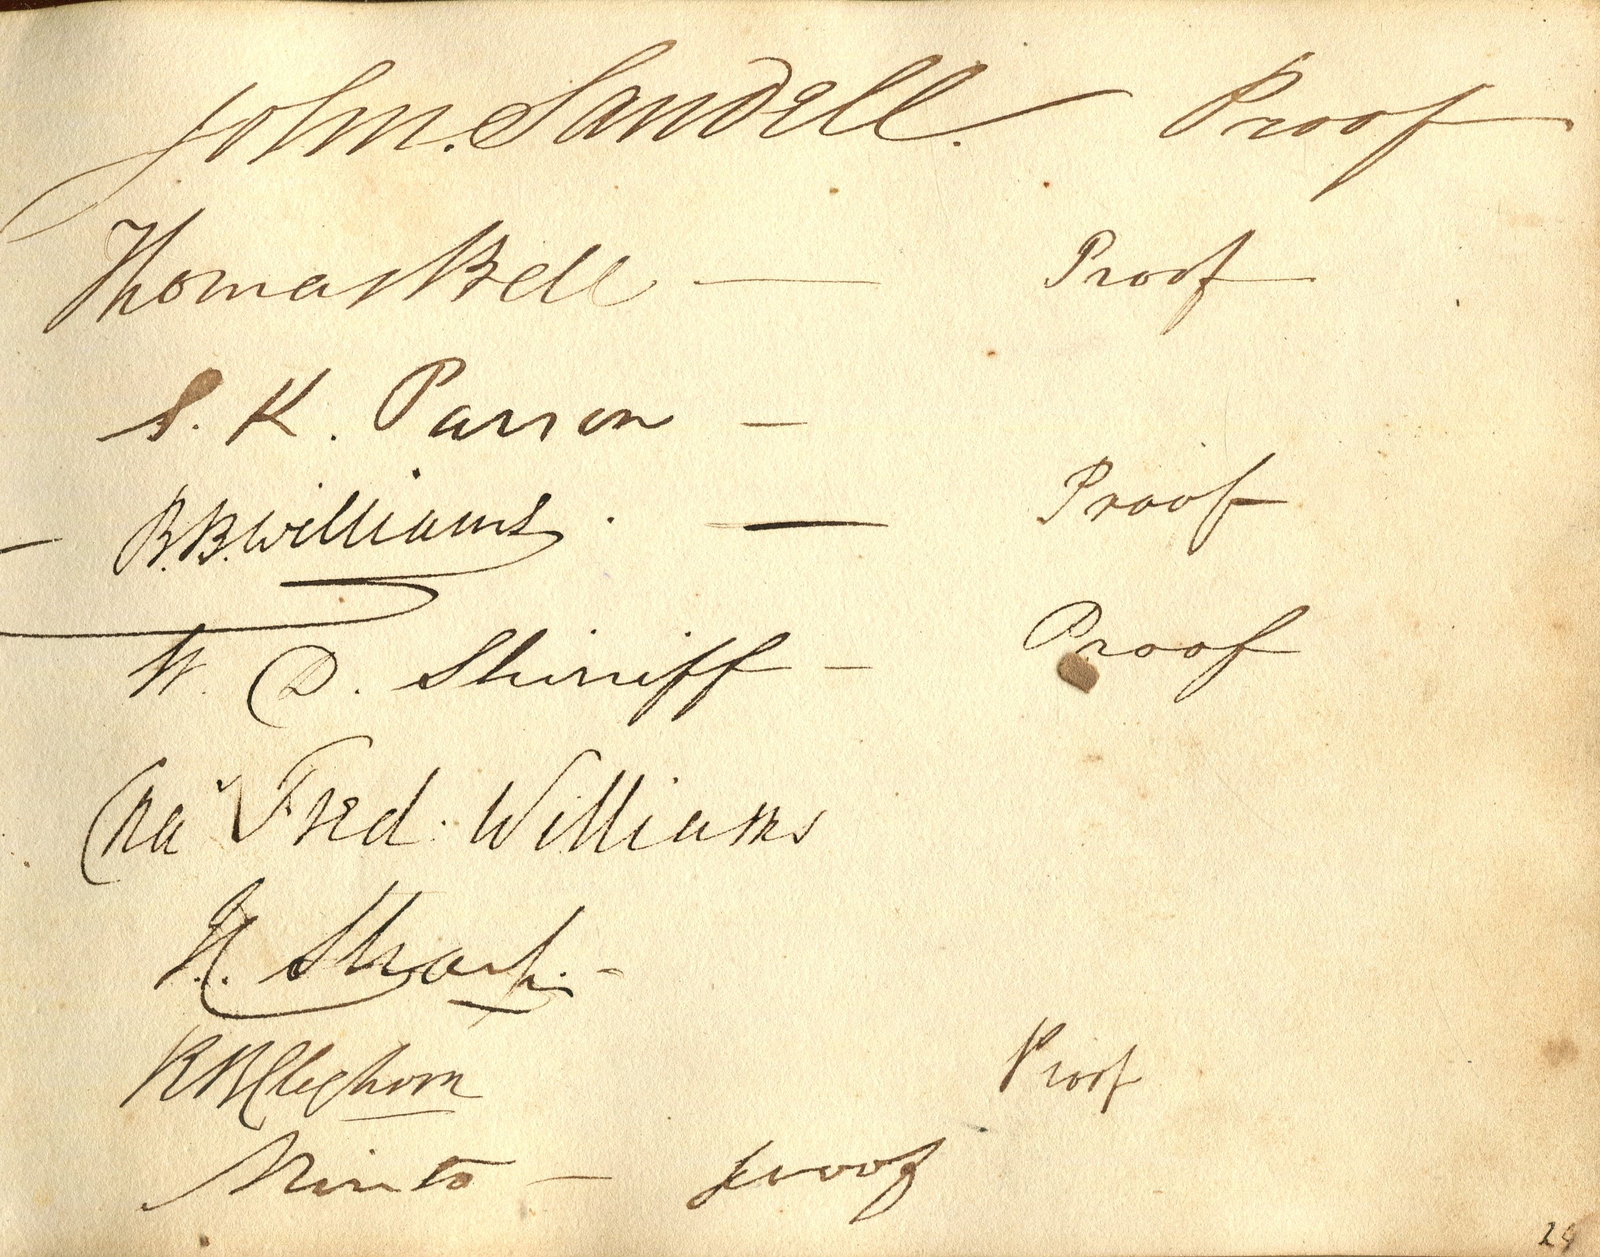 John. Sandell. Proof
Thomas Bell — Proof
S. K. Parson —
B. B. Williams. — Proof
W. D. Shirriff — Proof
Fred. Williams
H.
R B Cleghorn Proof
Minto — proof